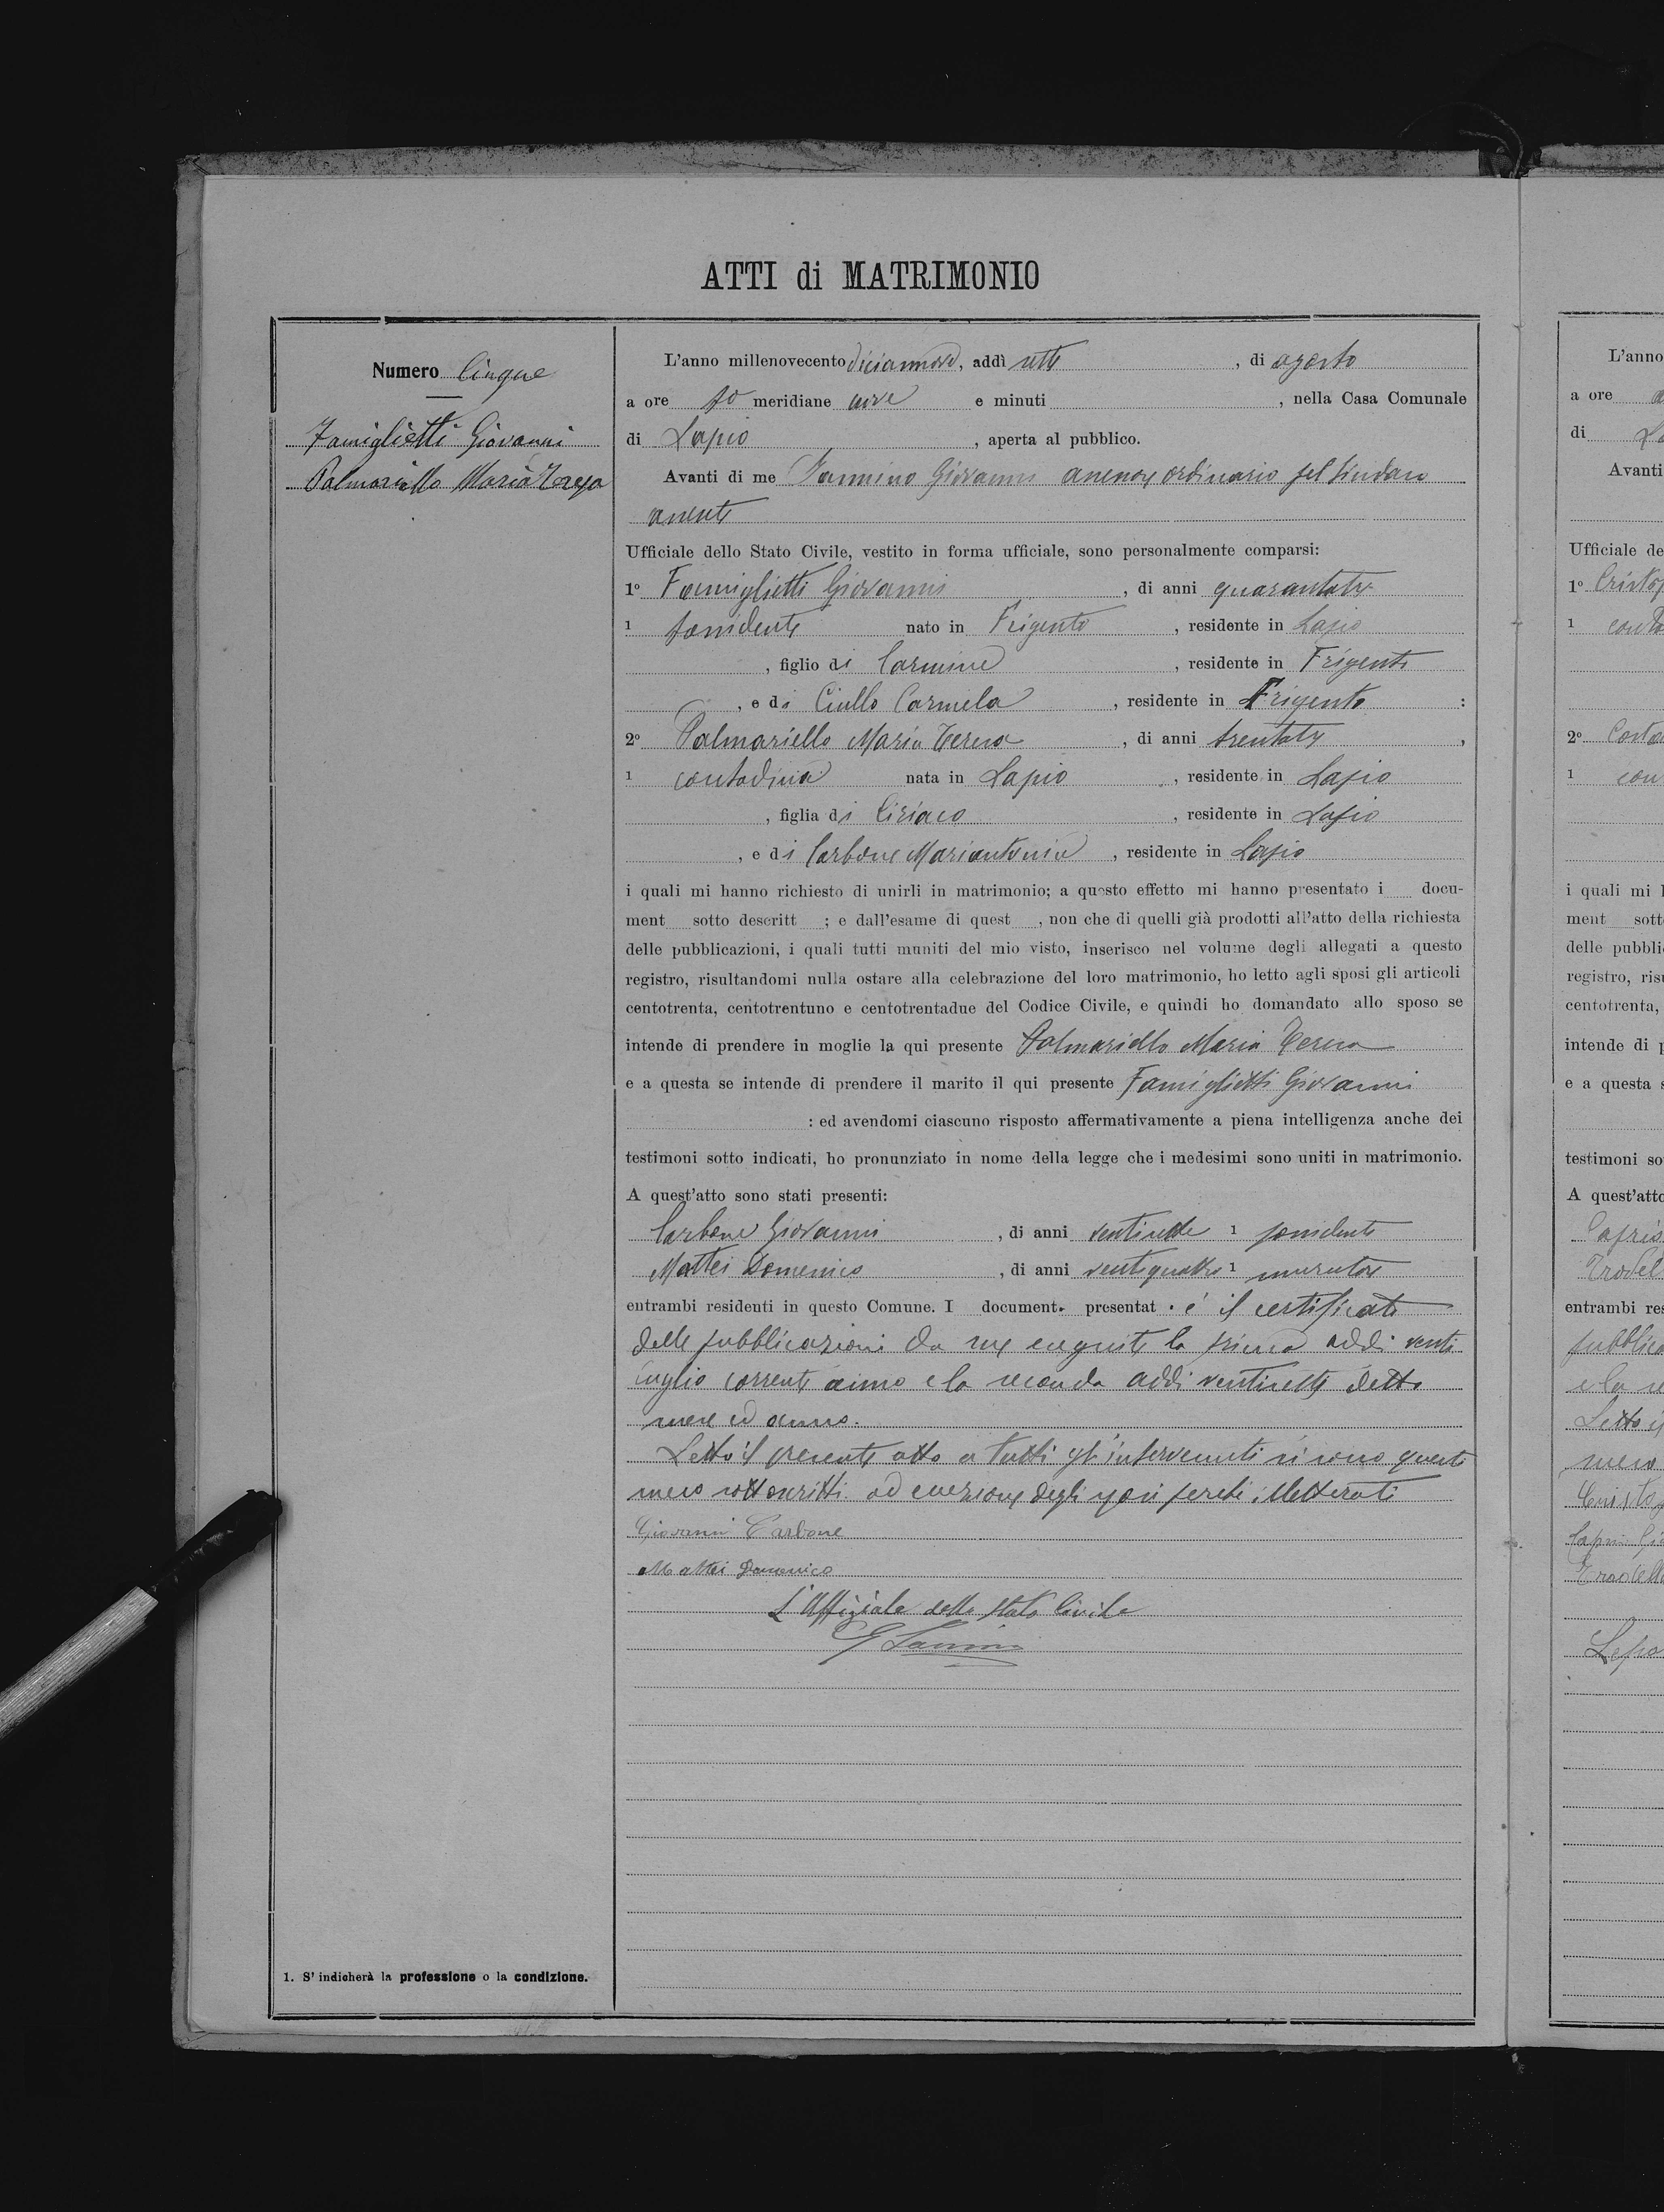 ATTI di MATRIMONIO
Numero Cinque
Famiglietti Giovanni
Palmariello Maria Teresa
1. S' indicherà la professione o la condizione.
L'anno millenovecento diciannove, addì sette, di agosto
a ore meridiane e minuti, nella Casa Comunale
di Lapio, aperta al pubblico.
Avanti di me Iannino Giovanni assessore ordinario pel Sindaco
assente
Ufficiale dello Stato Civile, vestito in forma ufficiale, sono personalmente comparsi:
1º Famiglietti Giovanni, di anni quarantatre
1 possidente nato in Frigento, residente in Lapio
, figlio di Carmine, residente in Frigento
, e di Ciullo Carmela, residente in Frigento :
2º Palmariello Maria Teresa, di anni trentatre,
1 contadina nata in Lapio, residente in Lapio
, figlia di Ciriaco, residente in Lapio
, e di Carbone Mariantonia, residente in Lapio
i quali mi hanno richiesto di unirli in matrimonio; a questo effetto mi hanno presentato i docu-
ment sotto descritt ; e dall'esame di quest , non che di quelli già prodotti all'atto della richiesta
delle pubblicazioni, i quali tutti muniti del mio visto, inserisco nel volume degli allegati a questo
registro, risultandomi nulla ostare alla celebrazione del loro matrimonio, ho letto agli sposi gli articoli
centotrenta, centotrentuno e centotrentadue del Codice Civile, e quindi ho domandato allo sposo se
intende di prendere in moglie la qui presente Palmariello Maria Teresa
e a questa se intende di prendere il marito il qui presente Famiglietti Giovanni
: ed avendomi ciascuno risposto affermativamente a piena intelligenza anche dei
testimoni sotto indicati, ho pronunziato in nome della legge che i medesimi sono uniti in matrimonio.
A quest'atto sono stati presenti:
Carbone Giovanni, di anni ventisette 1 possidente
Mattei Domenico, di anni ventiquattro 1 muratore
entrambi residenti in questo Comune. I document. presentat. è il certificato
delle pubblicazioni da me eseguite la prima addi venti
luglio corrente anno e la seconda addi ventisette detto
mese ed anno.
Letto il presente atto a tutti gl'intervenuti si sono questi
meco sottoscritti ad eccezione degli sposi perchè illetterati
Giovanni Carbone
Mattei Domenico
L'Uffiziale dello Stato Civile
G Iannino
L'anno
a ore
di
Avanti
Ufficiale de
1º
1
2º
1
i quali mi
ment sott
delle pubbli
registro, ris
centotrenta,
intende di
e a questa
testimoni so
A quest'atto
entrambi res